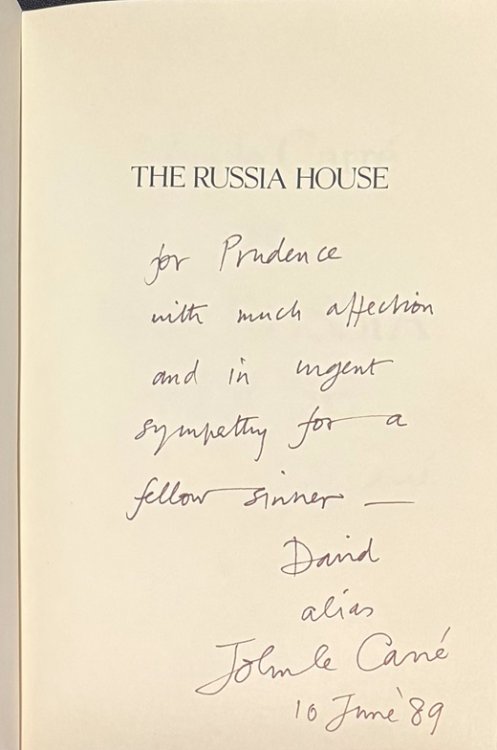 THE RUSSIA HOUSE
for Prudence
with much affection
and in urgent
sympathy for a
fellow sinner —
David
alias
John le Carré
10 June '89